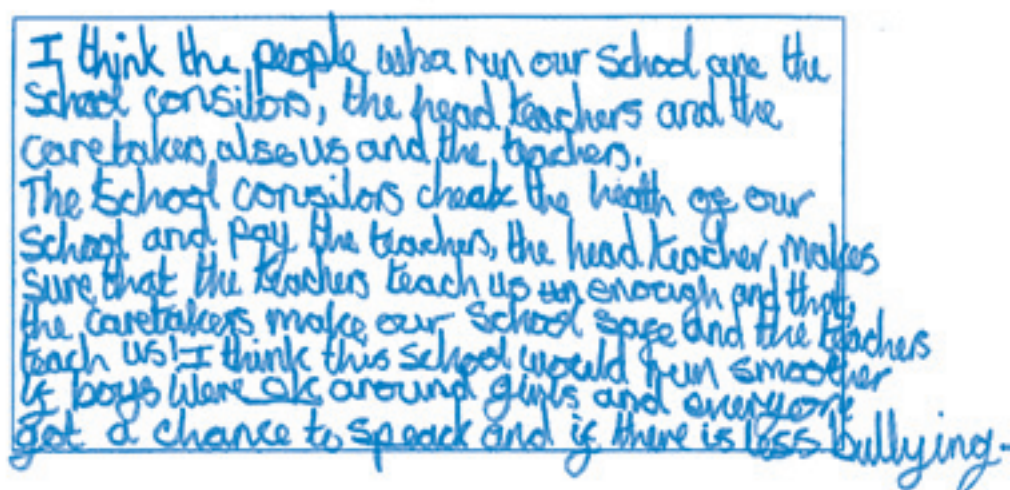 I think the people who run our school are the
School consilors, the head teachers and the
caretakers also us and the teachers.
The School consilors check the health of our
School and pay the teachers, the head teacher makes
sure that the teachers teach us enough and that
the caretakers make our school safe and the teachers
teach us! I think this school would run smoother
if boys were ok around girls and everyone
got a chance to speack and if there is less bullying.